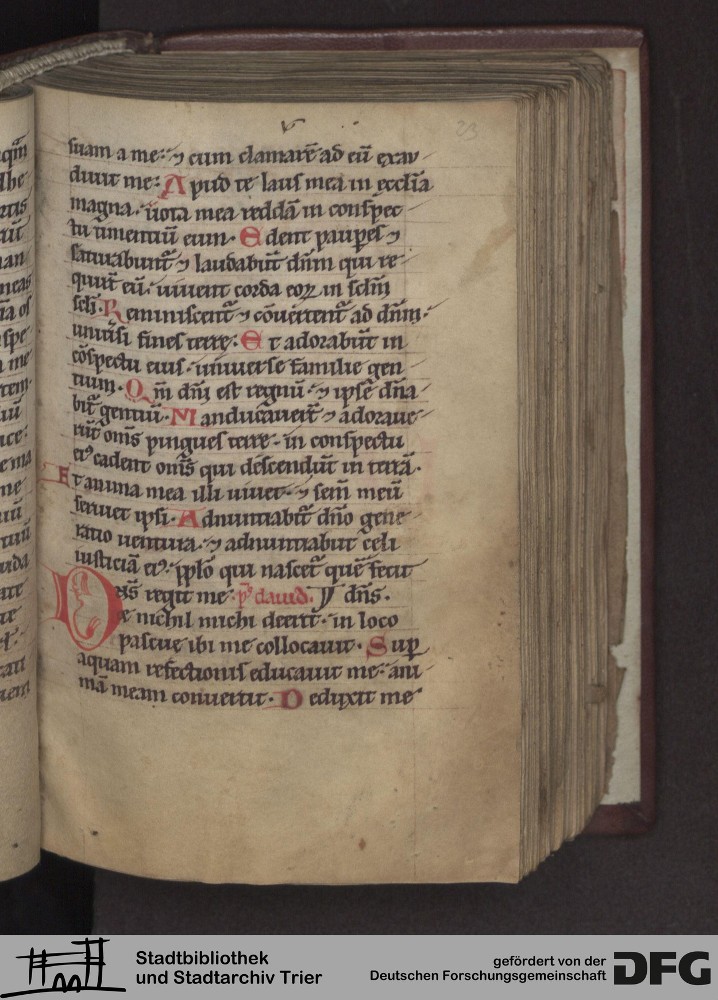 23
suam a me: ⁊ cum clamarē ad eū exau
diuit me: Apud te laus mea in ecclīa
magna. uota mea reddā in conspec
tu timentiū eum. Edent paupes ⁊
saturabunt̄ ⁊ laudabūt dn̄m qui re
quir̄t eū. uiuent corda eoꝝ in sclm̄
scl̄i. Reminiscent̄ ⁊ cōuertent̄ ad dn̄m.
uniūsi fines terre. Et adorabūt in
cōspectu eius. uniuerse familie gen
tium. Qm̄ dn̄i est regnū. ⁊ ipse dn̄a
bit̄ gentiū. Manducauer̄t ⁊ adoraue
rūt om̄s pingues terre. in conspectu
ei⁹ cadent om̄s qui descendūt in terrā.
Et anima mea illi uiuet. ⁊ sem̄ meū
seruiet ipsi. Adnuntiabit̄ dn̄o gene
ratio uentura. ⁊ adnuntiabūt celi
iusticiā ei⁹. pplo qui nascet̄ quē fecit
Dn̄s regit me. ps̄ dauid. dn̄s.
e nichil michi deerit. in loco
pascue ibi me collocauit. Sup
aquam refectionis educauit me. ani
mā meam conuertit. Deduxit me
Stadtbibliothek
und Stadtarchiv Trier
gefördert von der
Deutschen Forschungsgemeinschaft
DFG